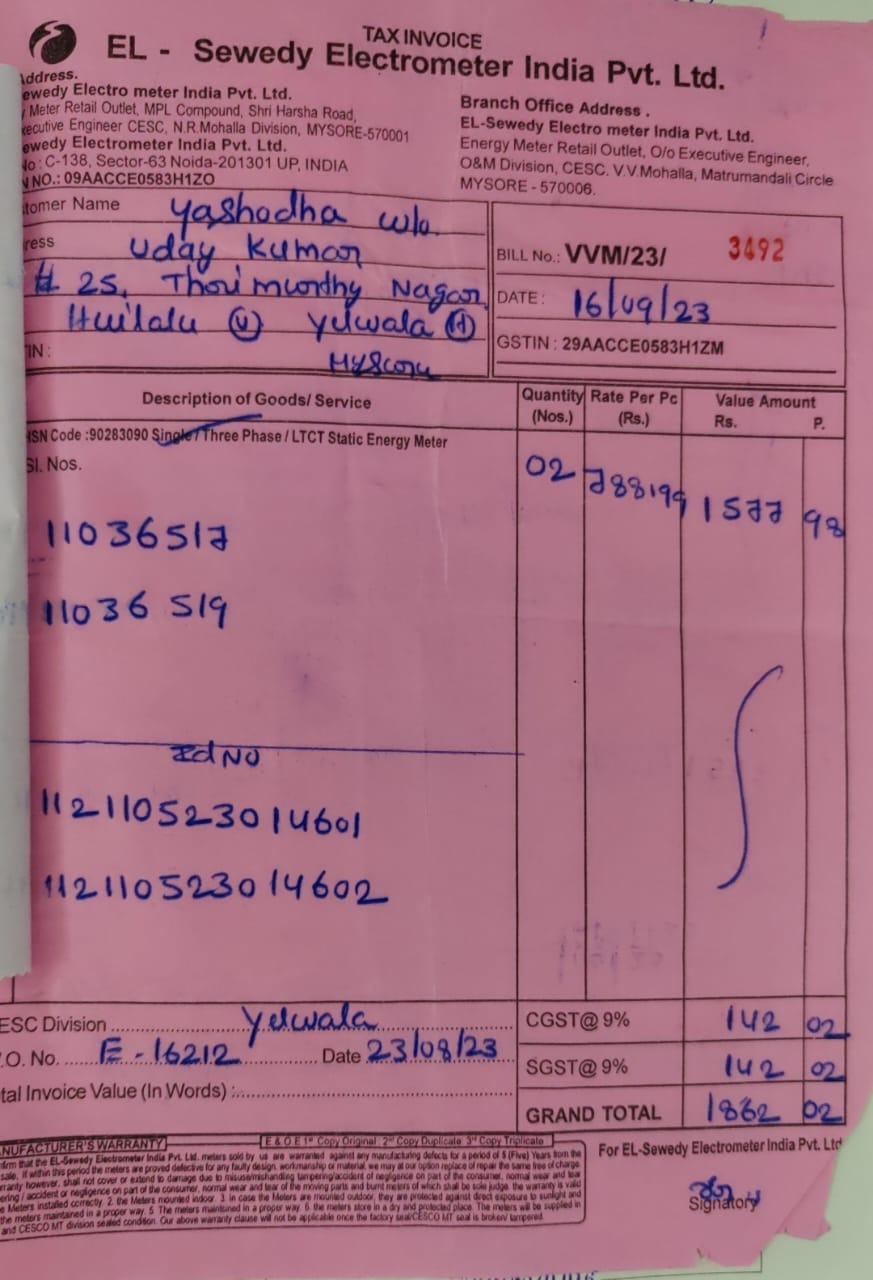 TAX INVOICE
EL - Sewedy Electrometer India Pvt. Ltd.
ddress.
ewedy Electro meter India Pvt. Ltd.
Meter Retail Outlet, MPL Compound, Shri Harsha Road,
xecutive Engineer CESC, N.R.Mohalla Division, MYSORE-570001
ewedy Electrometer India Pvt. Ltd.
No : C-138, Sector-63 Noida-201301 UP, INDIA
NO.: 09AACCE0583H1ZO
Branch Office Address .
EL-Sewedy Electro meter India Pvt. Ltd.
Energy Meter Retail Outlet, O/o Executive Engineer,
O&M Division, CESC. V.V.Mohalla, Matrumandali Circle
MYSORE - 570006.
tomer Name Yashodha w/o.
ress Uday Kumar
# 25, Thorimurthy Nagar
Huilalu (V) Yelwala (H)
IN : Mysoru
BILL No.: VVM/23/ 3492
DATE : 16/09/23
GSTIN : 29AACCE0583H1ZM
Description of Goods/ Service Quantity (Nos.) Rate Per Pc (Rs.) Value Amount Rs. P.
HSN Code :90283090 Single / Three Phase / LTCT Static Energy Meter
Sl. Nos. 02 788199 1577 98
11036517
11036 519
Id NO
112110523014601
112110523014602
ESC Division Yelwala
.O. No. E-16212 Date 23/08/23
tal Invoice Value (In Words) :
CGST@ 9% 142 02
SGST@ 9% 142 02
GRAND TOTAL 1862 02
E & O E 1st Copy Original 2nd Copy Duplicate 3rd Copy Triplicate
NUFACTURER'S WARRANTY
firm that the EL-Sewedy Electrometer India Pvt. Ltd. meters sold by us are warranted against any manufacturing defects for a period of 5 (Five) Years from the
sale. If within this period the meters are proved defective for any faulty design, workmanship or material, we may at our option replace of repair the same free of charge.
rranty however, shall not cover or extend to damage due to misuse/mishandling tampering/accident of negligence on part of the consumer, normal wear and tear
ering / accident or negligence on part of the consumer, normal wear and tear of the moving parts and burnt meters of which shall be sole judge. the warranty is valid
e Meters installed correctly. 2. the Meters mounted indoor. 3. in case the Meters are mounted outdoor, they are protected against direct exposure to sunlight and
the meters maintained in a proper way. 5. The meters maintained in a proper way. 6. the meters store in a dry and protected place. The meters will be supplied in
and CESCO MT division sealed condition. Our above warranty clause will not be applicable once the factory seal/CESCO MT seal is broken/ tampered.
For EL-Sewedy Electrometer India Pvt. Ltd
Signatory